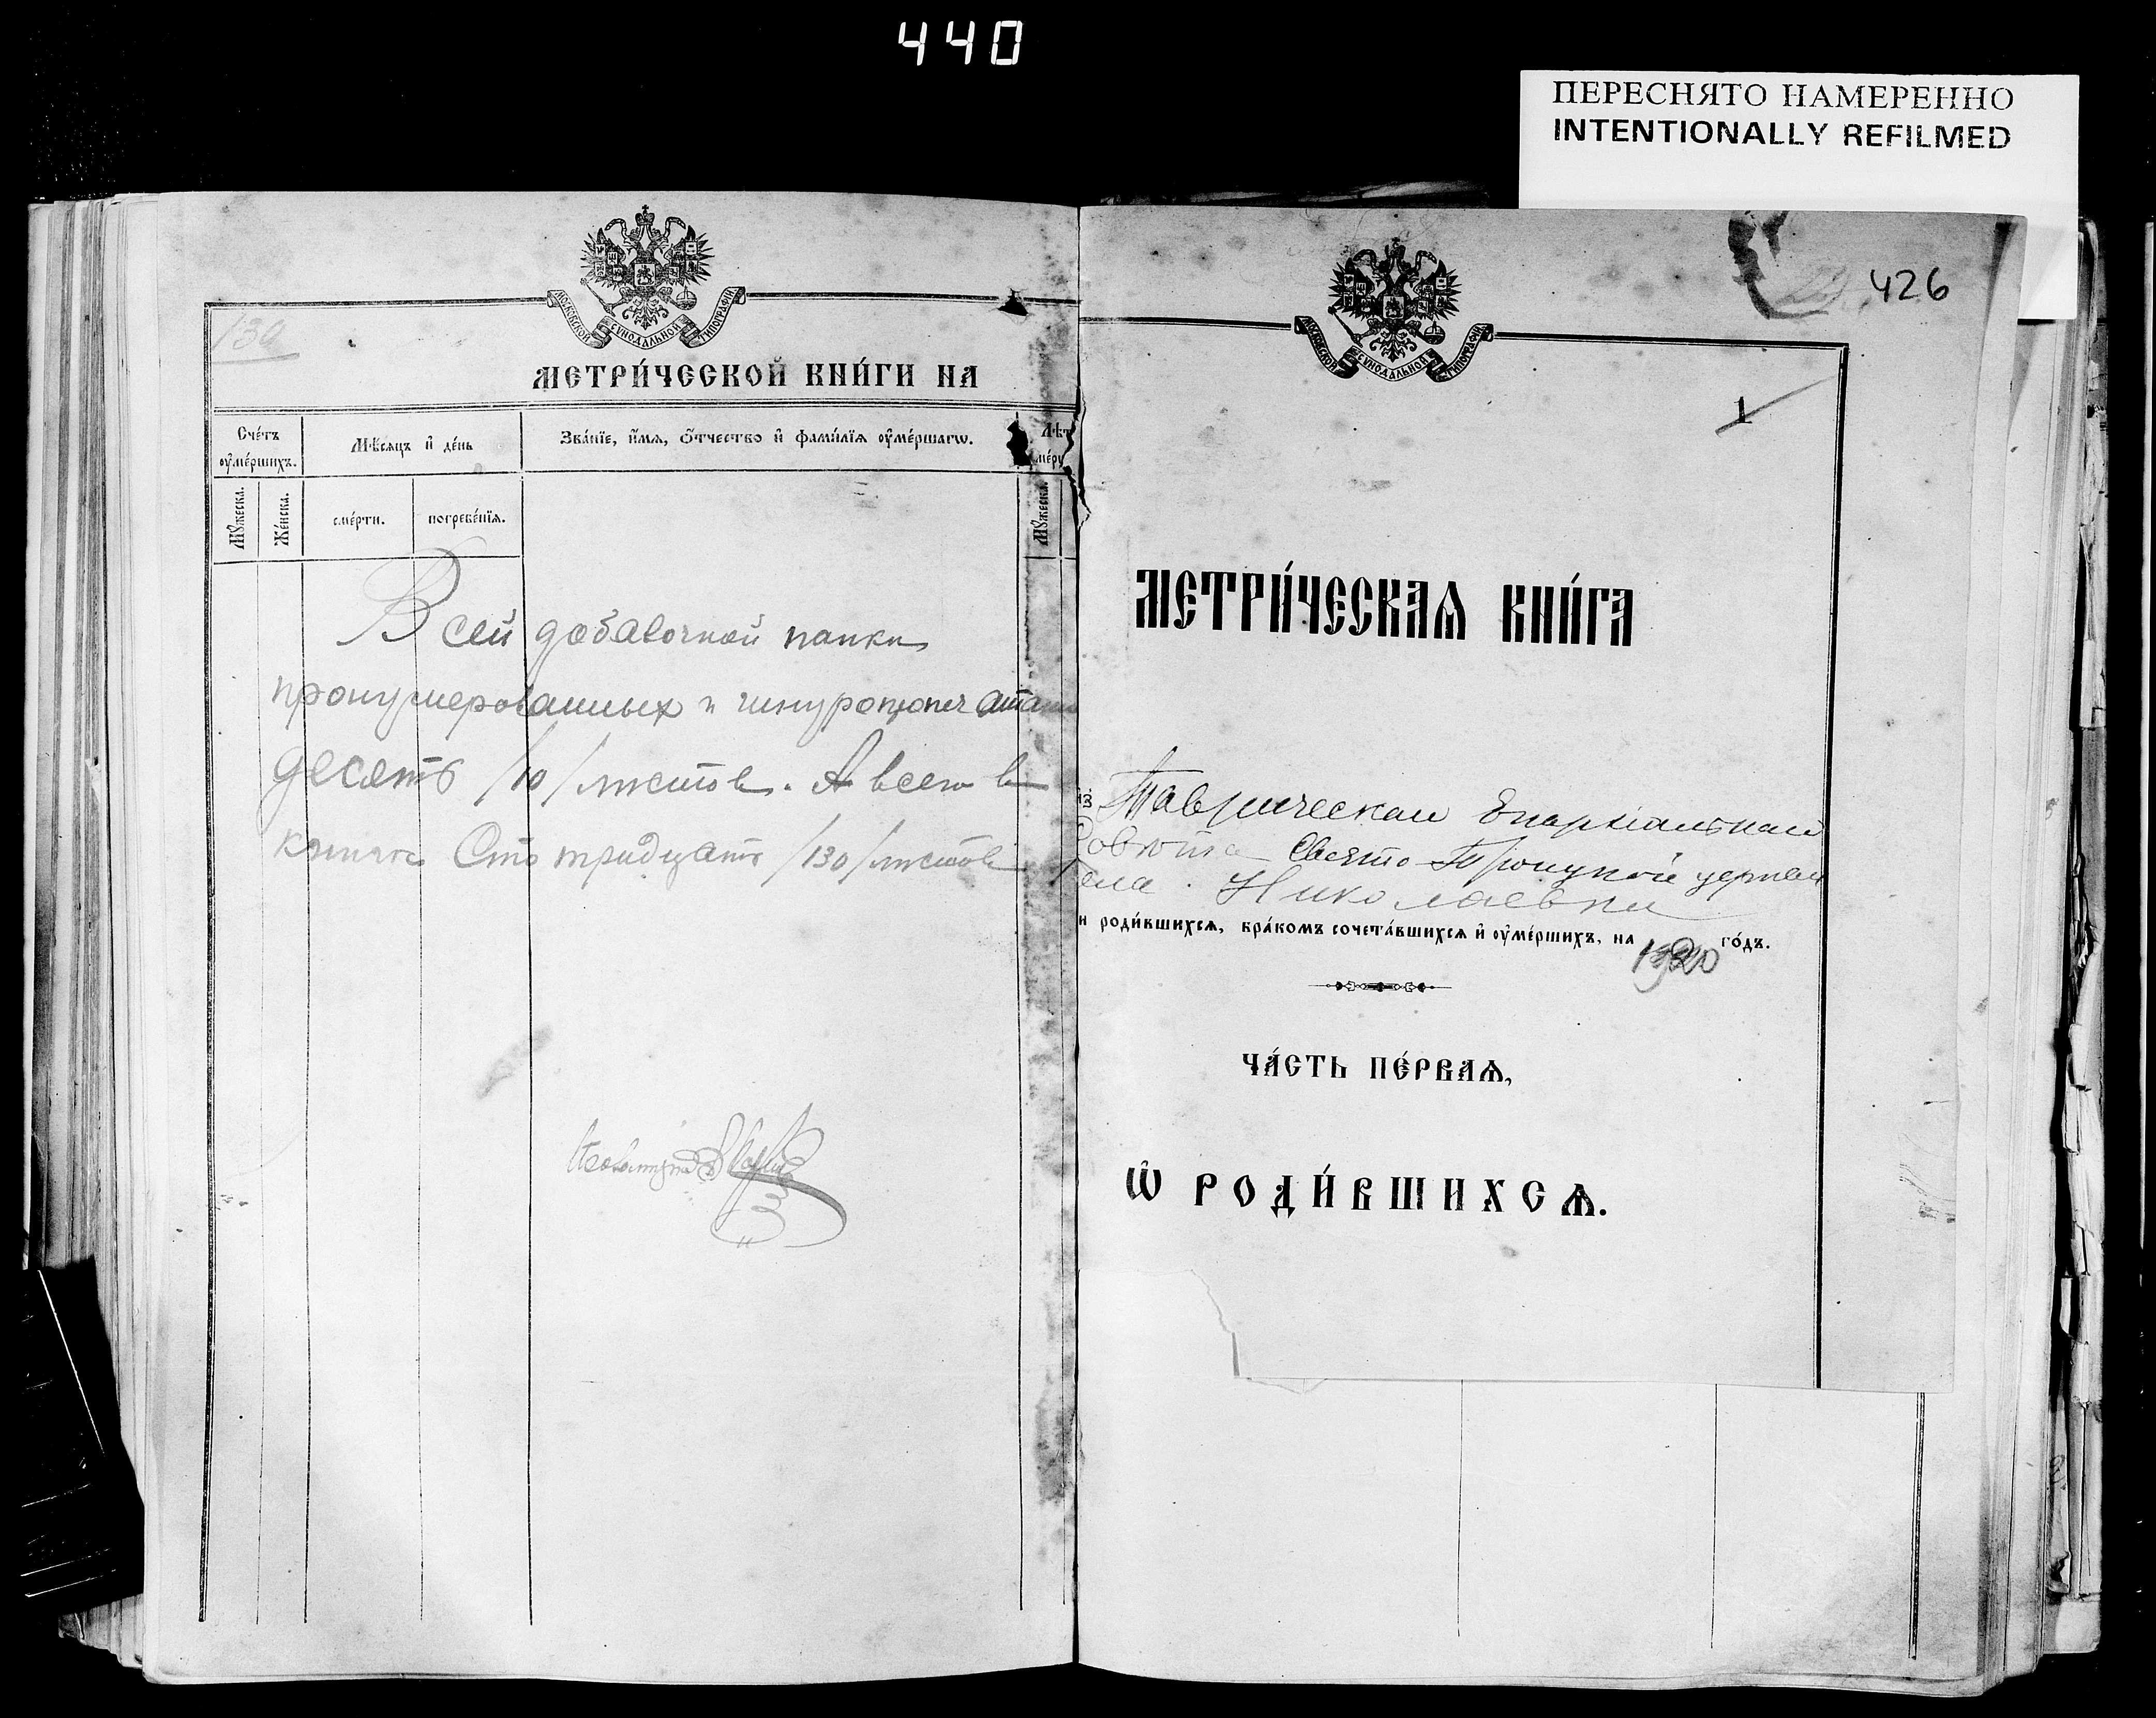 440
ПЕРЕСНЯТО НАМЕРЕННО
INTENTIONALLY REFILMED
130
МОСКОВСКОЙ СѴНОДАЛЬНОЙ ТИПОГРАФІИ
МЕТРИ́ЧЕСКОЙ КНИ́ГИ НА
Сче́тъ оу҆ме́ршихъ.
Мѣ́сяцъ и҆ де́нь
Зва́нїе, и҆́мѧ, ѻ҆́тчество и҆ фами́лїѧ оу҆ме́ршагѡ.
Лѣт
ме́ру
Мꙋ́жеска.
Же́нска.
сме́рти.
погребе́нїѧ.
Мꙋ́жеска.
В сей добавочной папки
пронумерованных и шнуропропечатан
десять /10/ листов. А всего в
книге Сто тридцать /130/ листов
426
МОСКОВСКОЙ СѴНОДАЛЬНОЙ ТИПОГРАФІИ
1
МЕТРИ́ЧЕСКАѦ КНИ́ГА
Таврическаи Епархіальнаи
Свято Троицкой церкви
села Николаевки
и роди́вшихсѧ, бра́комъ сочета́вшихсѧ и҆ оу҆ме́ршихъ, на 1920 го́дъ.
ЧА́СТЬ ПЕ́РВАѦ,
Ѡ҆ РОДИ́ВШИХСѦ.